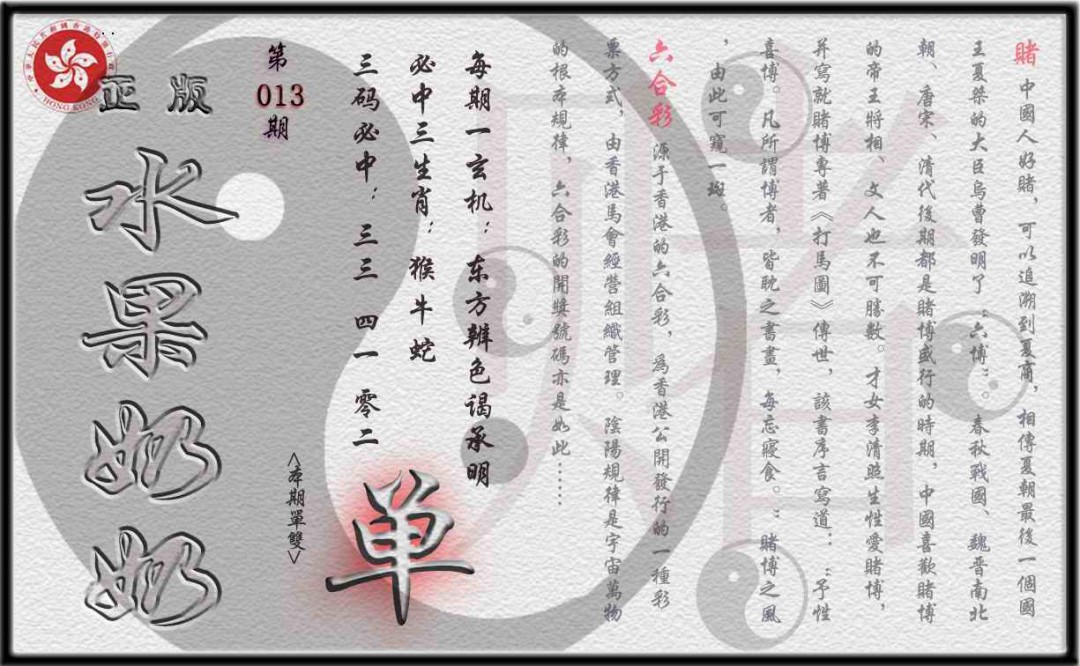 賭 中國人好賭，可以追溯到夏商，相傳夏朝最後一個國
王夏桀的大臣烏曹發明了“六博”。春秋戰國、魏晉南北
朝、唐宋、清代後期都是賭博盛行的時期，中國喜歡賭博
的帝王將相、文人也不可勝數。才女李清照生性愛賭博，
并寫就賭博專著《打馬圖》傳世，該書序言寫道：“予性
喜博。凡所謂博者，皆耽之晝晝，每忘寢食。”賭博之風
，由此可窺一斑。
六合彩 源于香港的六合彩，為香港公開發行的一種彩
票方式，由香港馬會經營組織管理。陰陽規律是宇宙萬物
的根本規律，六合彩的開獎號碼亦是如此……
每期一玄机：东方辨色谒承明
必中三生肖：猴牛蛇
三码必中：三三 四一 零二
单
<本期單雙>
第
013
期
正版
水果奶奶
HONG KONG
賭